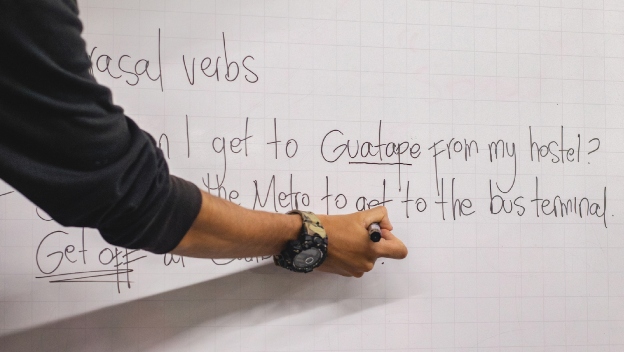 verbs
I get to Guatape from my hostel?
the Metro to get to the bus terminal.
Get off